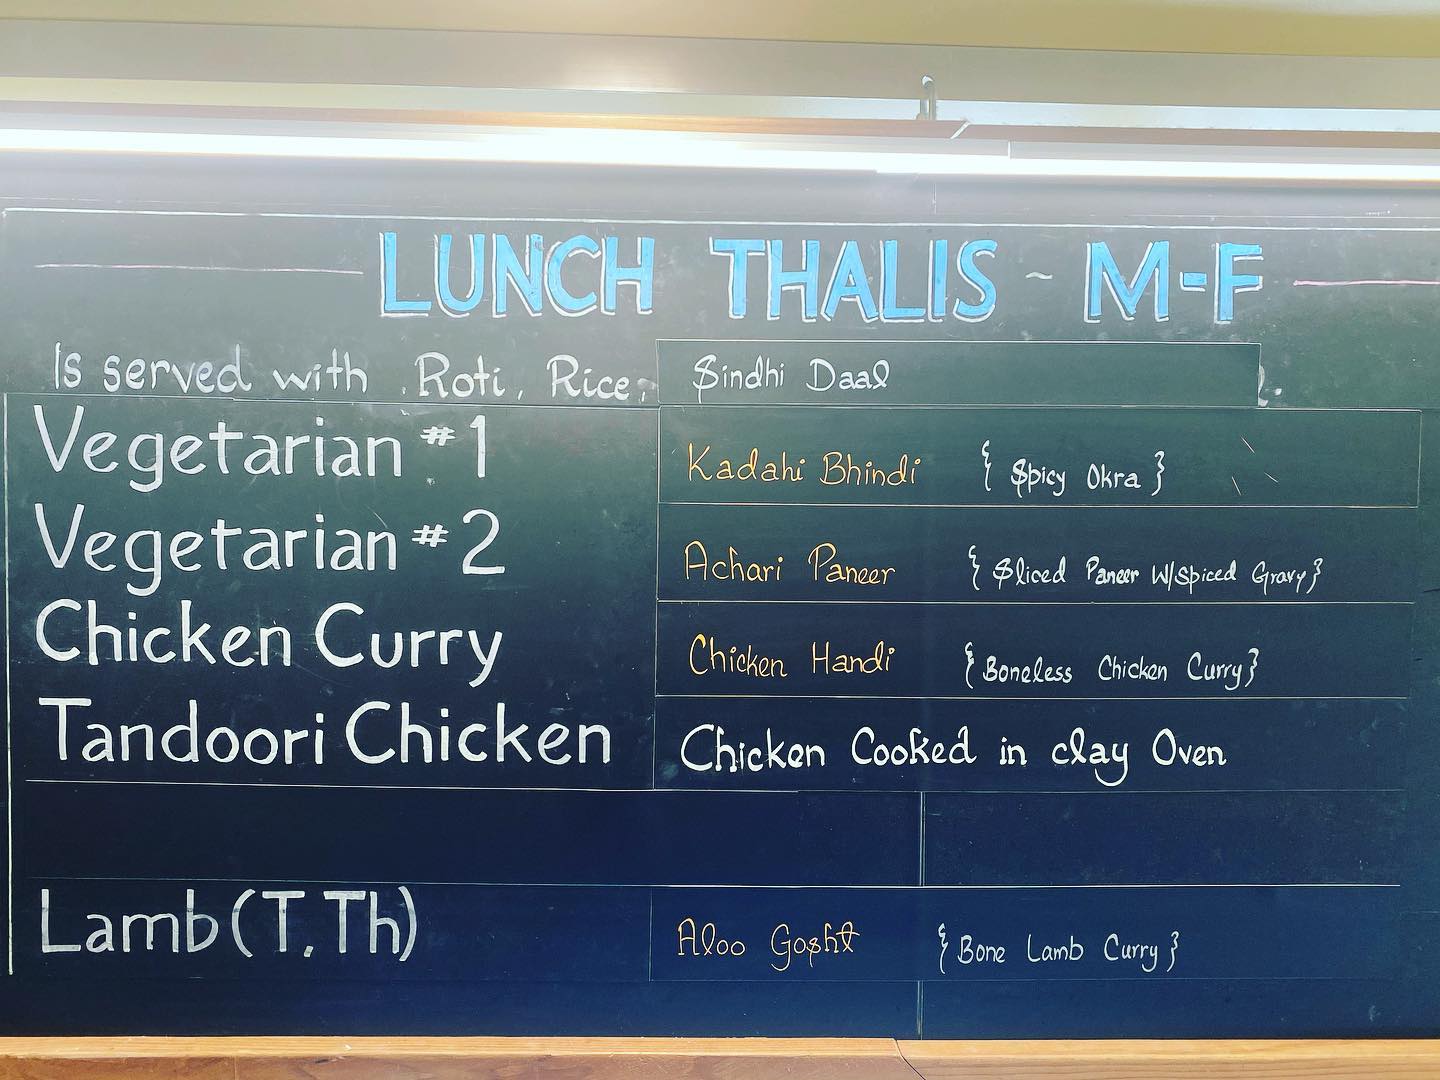 LUNCH THALIS ~ M-F
Is served with Roti, Rice, Sindhi Daal
Vegetarian #1 Kadahi Bhindi { Spicy Okra }
Vegetarian #2 Achari Paneer { Sliced Paneer W/Spiced Gravy }
Chicken Curry Chicken Handi { Boneless Chicken Curry }
Tandoori Chicken Chicken Cooked in clay Oven
Lamb (T, Th) Aloo Gosht { Bone Lamb Curry }